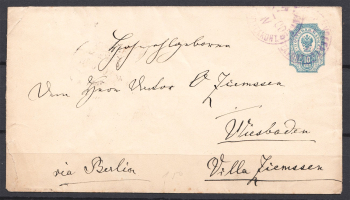 Hochwohlgeboren
dem Herrn Victor Ziemssen
Wiesbaden
via Berlin
Villa Ziemssen